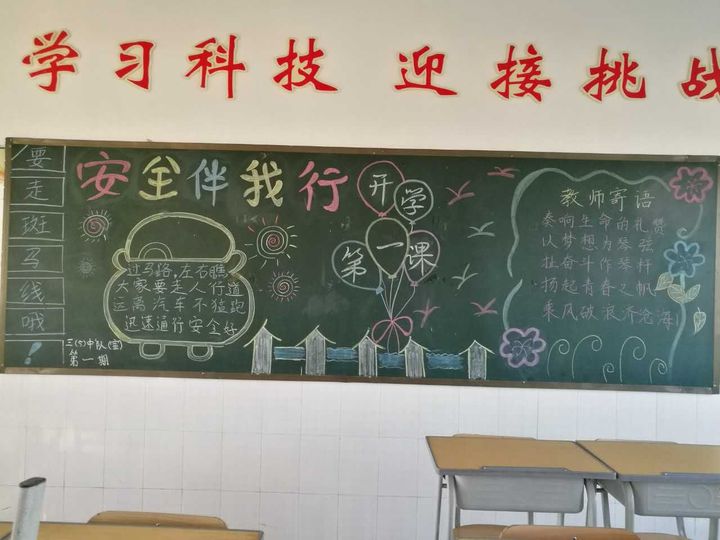 学习科技 迎接挑战
要
走
斑
马
线
哦
!
安全伴我行
过马路,左右瞧
大家要走人行道
远离汽车不猛跑
迅速通行安全好
三(5)中队(宣)
第一期
开学
第一课
教师寄语
奏响生命的礼赞
以梦想为琴弦
扯奋斗作琴杆
扬起青春之帆
乘风破浪济沧海